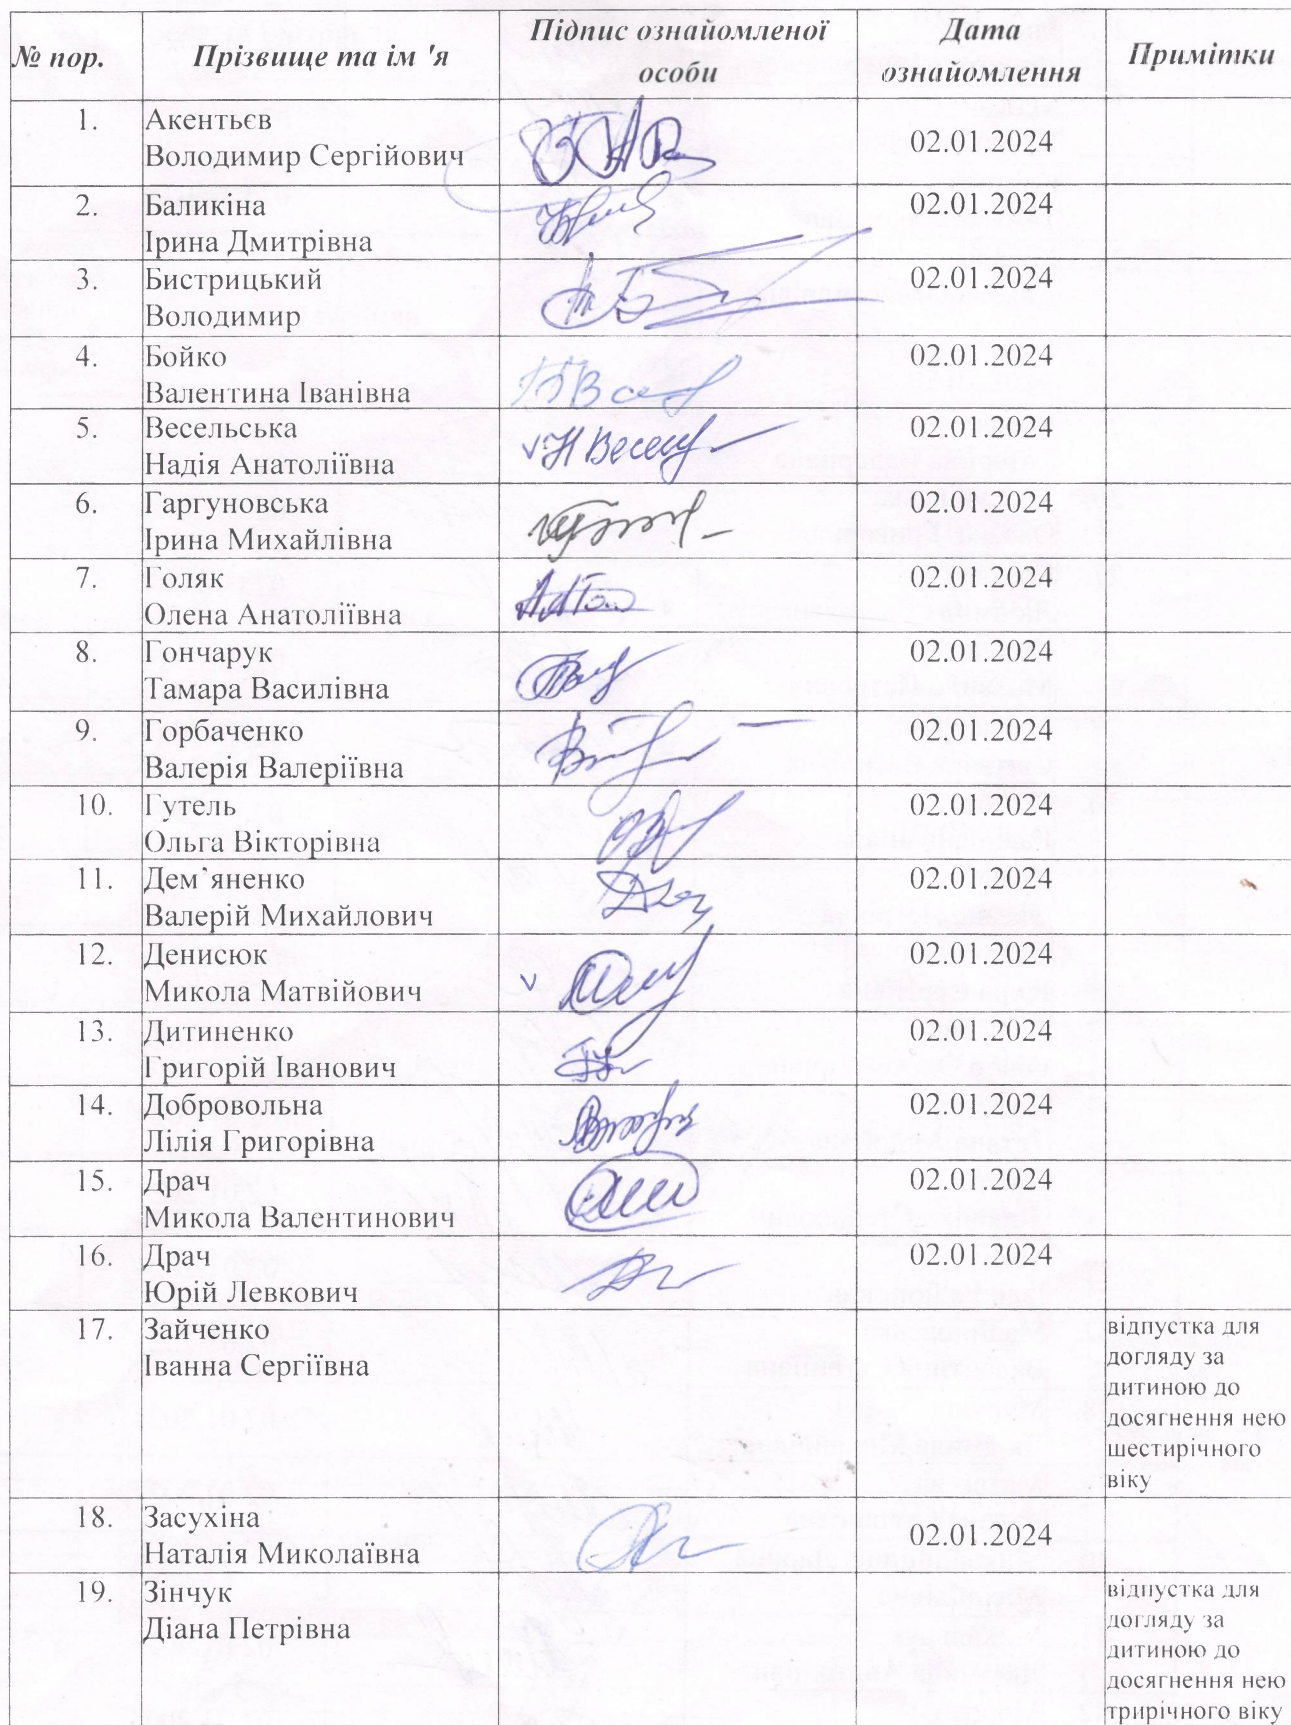 № пор.
Прізвище та ім 'я
Підпис ознайомленої
особи
Дата
ознайомлення
Примітки
1.
Акентьєв
Володимир Сергійович
02.01.2024
2.
Баликіна
Ірина Дмитрівна
02.01.2024
3.
Бистрицький
Володимир
02.01.2024
4.
Бойко
Валентина Іванівна
02.01.2024
5.
Весельська
Надія Анатоліївна
02.01.2024
6.
Гаргуновська
Ірина Михайлівна
02.01.2024
7.
Голяк
Олена Анатоліївна
02.01.2024
8.
Гончарук
Тамара Василівна
02.01.2024
9.
Горбаченко
Валерія Валеріївна
02.01.2024
10.
Гутель
Ольга Вікторівна
02.01.2024
11.
Дем’яненко
Валерій Михайлович
02.01.2024
12.
Денисюк
Микола Матвійович
02.01.2024
13.
Дитиненко
Григорій Іванович
02.01.2024
14.
Добровольна
Лілія Григорівна
02.01.2024
15.
Драч
Микола Валентинович
02.01.2024
16.
Драч
Юрій Левкович
02.01.2024
17.
Зайченко
Іванна Сергіївна
відпустка для
догляду за
дитиною до
досягнення нею
шестирічного
віку
18.
Засухіна
Наталія Миколаївна
02.01.2024
19.
Зінчук
Діана Петрівна
відпустка для
догляду за
дитиною до
досягнення нею
трирічного віку